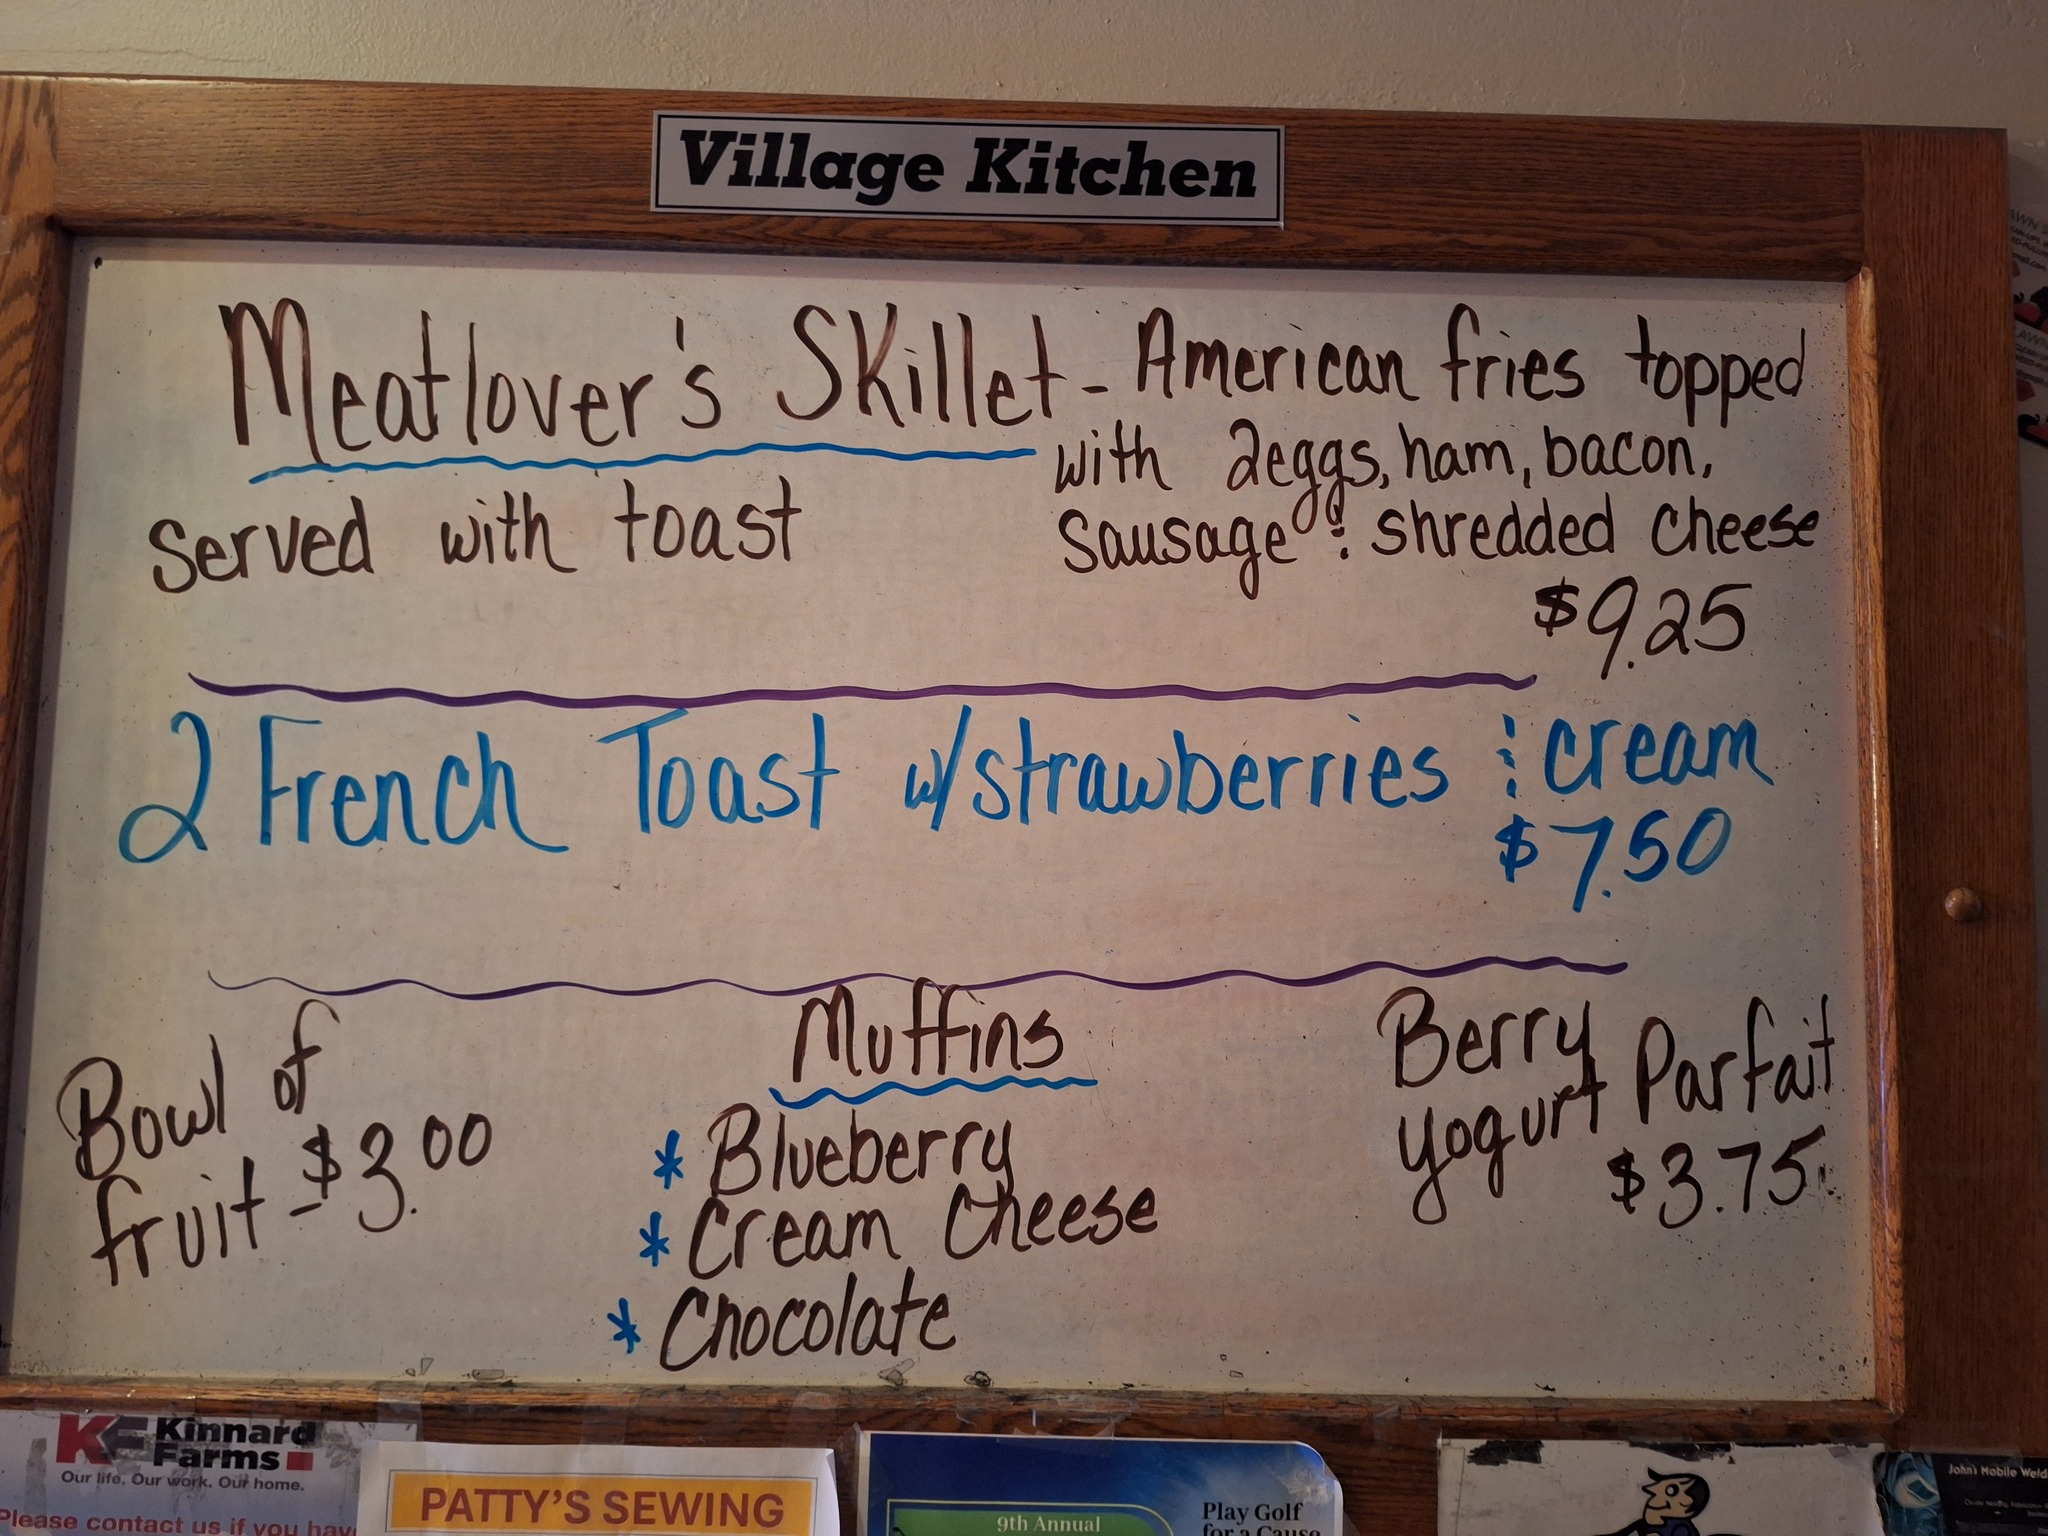 Village Kitchen
Meatlover's Skillet - American fries topped
with 2eggs, ham, bacon,
sausage & shredded cheese
served with toast
$9.25
2 French Toast w/strawberries & cream
$7.50
Bowl of
fruit - $3.00
Muffins
* Blueberry
* Cream Cheese
* Chocolate
Berry
Yogurt Parfait
$3.75
KF Kinnard
Farms
Our life. Our work. Our home.
Please contact us if you have
PATTY'S SEWING
9th Annual
Play Golf
for a Cause
John's Mobile Weld